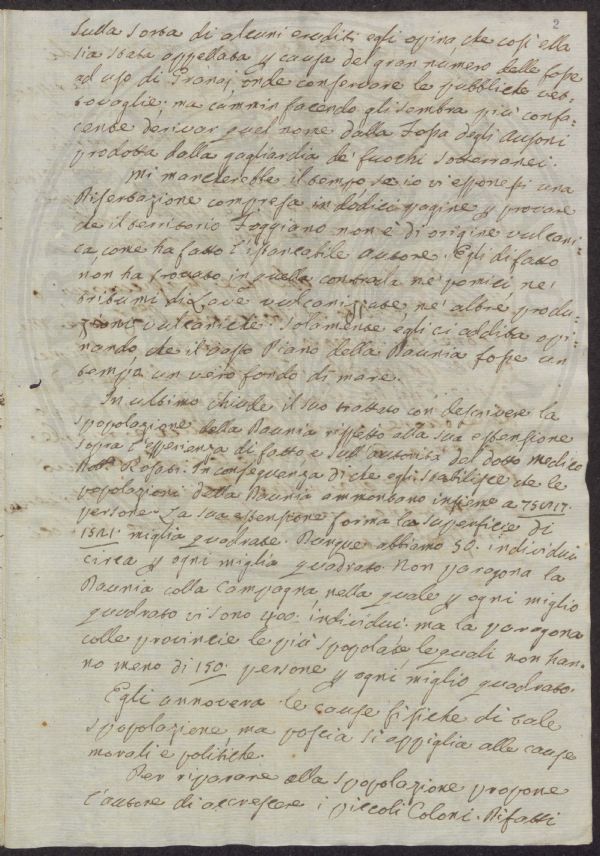 2
Sulla sorta di alcuni eruditi egli opina, che così ella
sia stata appellata p causa del gran numero delle fosse
ad uso di Granaj, onde conservare le pubbliche vet-
tovaglie; ma cammin facendo gli sembra più confa-
cente derivar quel nome dalla Fossa degli Ausoni
prodotta dalla gagliardia de' fuochi sotterranei.
Mi mancherebbe il tempo se io vi esponessi una
Dissertazione compresa in dodici pagine p provare
che il territorio Foggiano non è di origine vulcani-
ca, come ha fatto l'istancabile Autore. Egli difatto
non ha trovato in quella contrada nè pomici, nè
bitumi di Lave vulcanizzate, nè altre produ-
zioni vulcaniche. Solamente egli ci addita opi-
nando, che il vasto Piano della Daunia fosse un
tempo un vero fondo di mare.
In ultimo chiude il suo trattato con descrivere la
spopolazione della Daunia rispetto alla sua estensione
sopra l'esperienza di fatto e sull'autorità del dotto medico
Rosati. In conseguenza di che egli stabilisce che le
popolazioni della Daunia ammontano insieme a
persone. La sua estensione forma la superficie di
1521. miglia quadrate. Dunque abbiamo 50. individui
circa p ogni miglia quadrato. Non paragona la
Daunia colla Campagna nella quale p ogni miglio
quadrato vi sono 400. individui: ma la paragona
colle provincie le più spopolate le quali non han-
no meno di 150. persone p ogni miglio quadrato.
Egli annovera le cause fisiche di tale
spopolazione, ma poscia si appiglia alle cause
morali e politiche.
Per riparare alla spopolazione propone
l'autore di accrescere i piccoli Coloni. Difatti